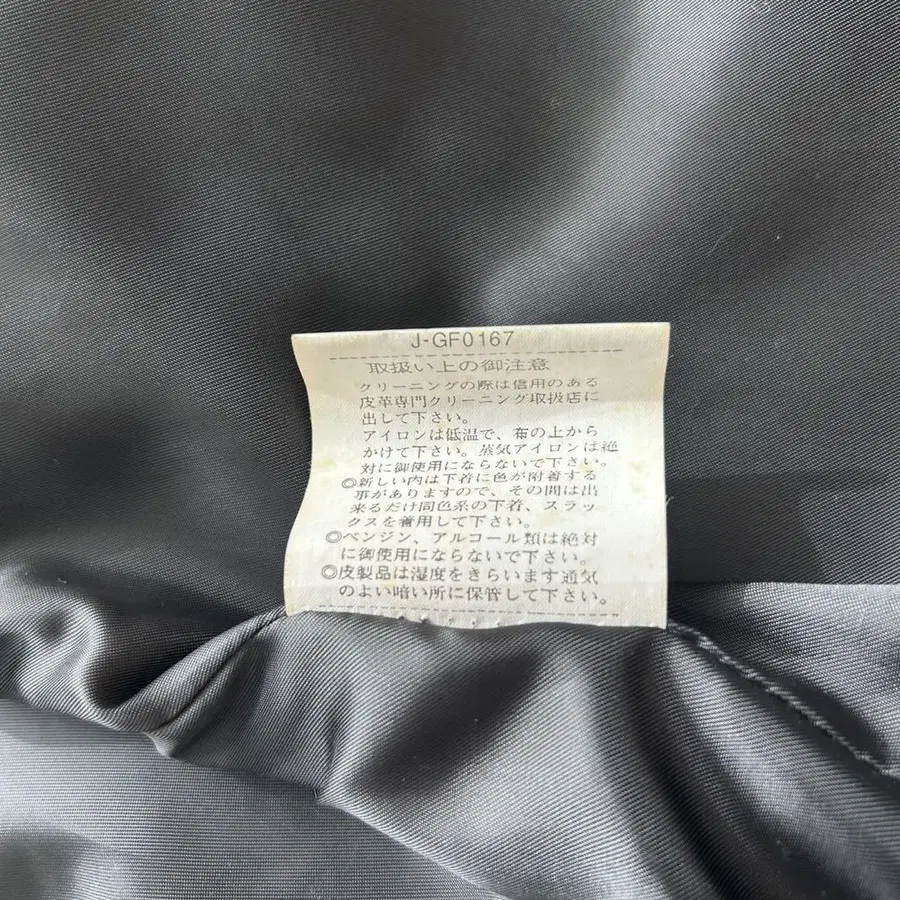 J-GF0167
取扱い上の御注意
クリーニングの際は信用のある
皮革専門クリーニング取扱店に
出して下さい。
アイロンは低温で、布の上から
かけて下さい。蒸気アイロンは絶
対に御使用にならないで下さい。
◎新しい内は下着に色が附着する
事がありますので、その間は出
来るだけ同色系の下着、スラッ
クスを着用して下さい。
◎ベンジン、アルコール類は絶対
に御使用にならないで下さい。
◎皮製品は湿度をきらいます通気
のよい暗い所に保管して下さい。